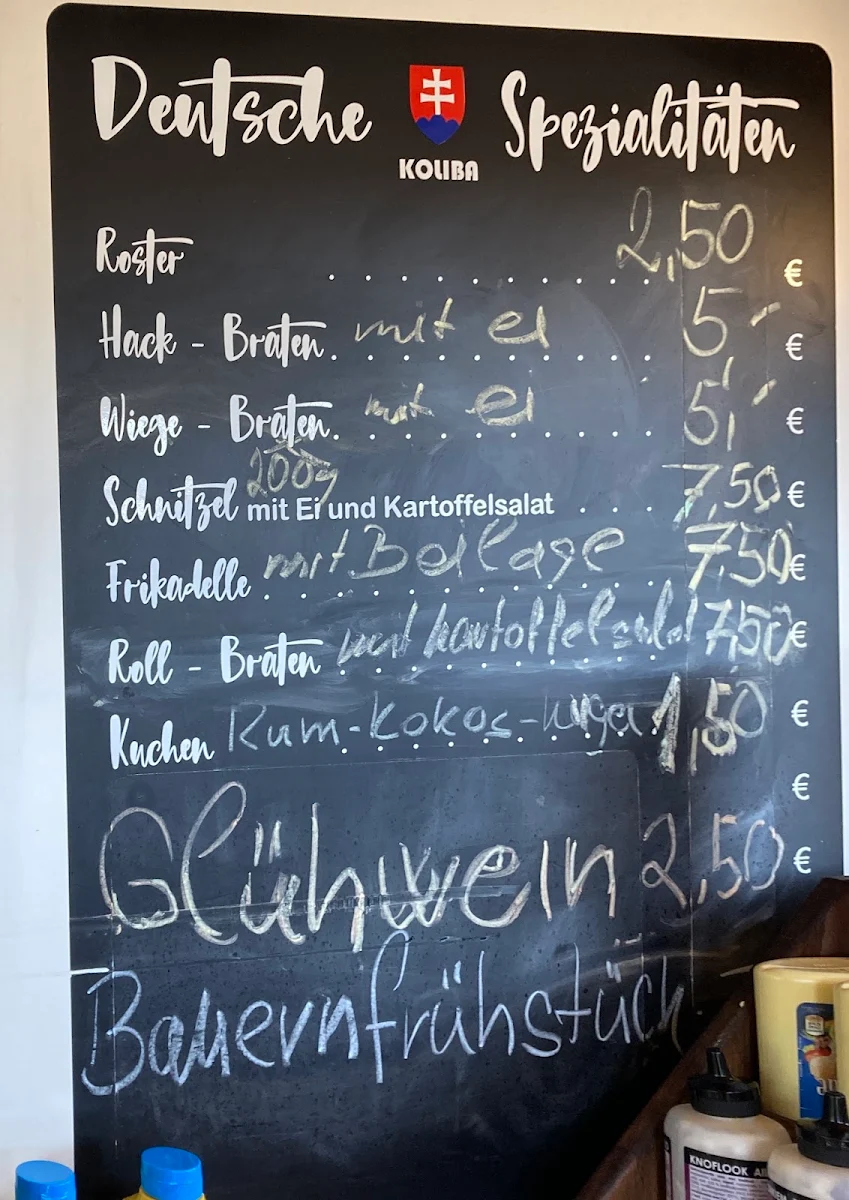 Deutsche Spezialitäten
KOLIBA
Roster . . . . . . . . . 2,50 €
Hack - Braten. mit ei . . . . . . . . . 5,- €
Wiege - Braten. mit ei . . . . . . . . . 5,- €
200g
Schnitzel mit Ei und Kartoffelsalat . . . . 7,50 €
Frikadelle mit Beilage 7,50 €
Roll - Braten mit kartoffelsalat 7,50 €
Kuchen Rum-kokos- 1,50 €
€
Glühwein 2,50 €
Bauernfrühstück
KNOFLOOK